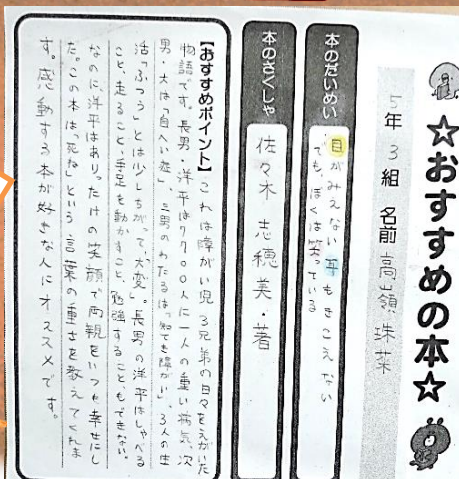 ☆おすすめの本☆
5年 3組 名前 高嶺 珠菜
本のだいめい
目がみえない 耳もきこえない
でも、ぼくは笑っている
本のさくしゃ
佐々木 志穂美・著
【おすすめポイント】これは障がい児3兄弟の日々をえがいた
物語です。長男・洋平は7700人に一人の重い病気、次
男・大は「自へい症」、三男のわたるは「知てき障がい」。3人の生
活「ふつう」とは少しちがって、大変。長男の洋平はしゃべる
こと、走ること、手足を動かすこと、勉強することもできない。
なのに、洋平はありったけの笑顔で両親をいつも幸せにし
た。この本は「死ね」という言葉の重さを教えてくれま
す。感動する本が好きな人にオススメです。